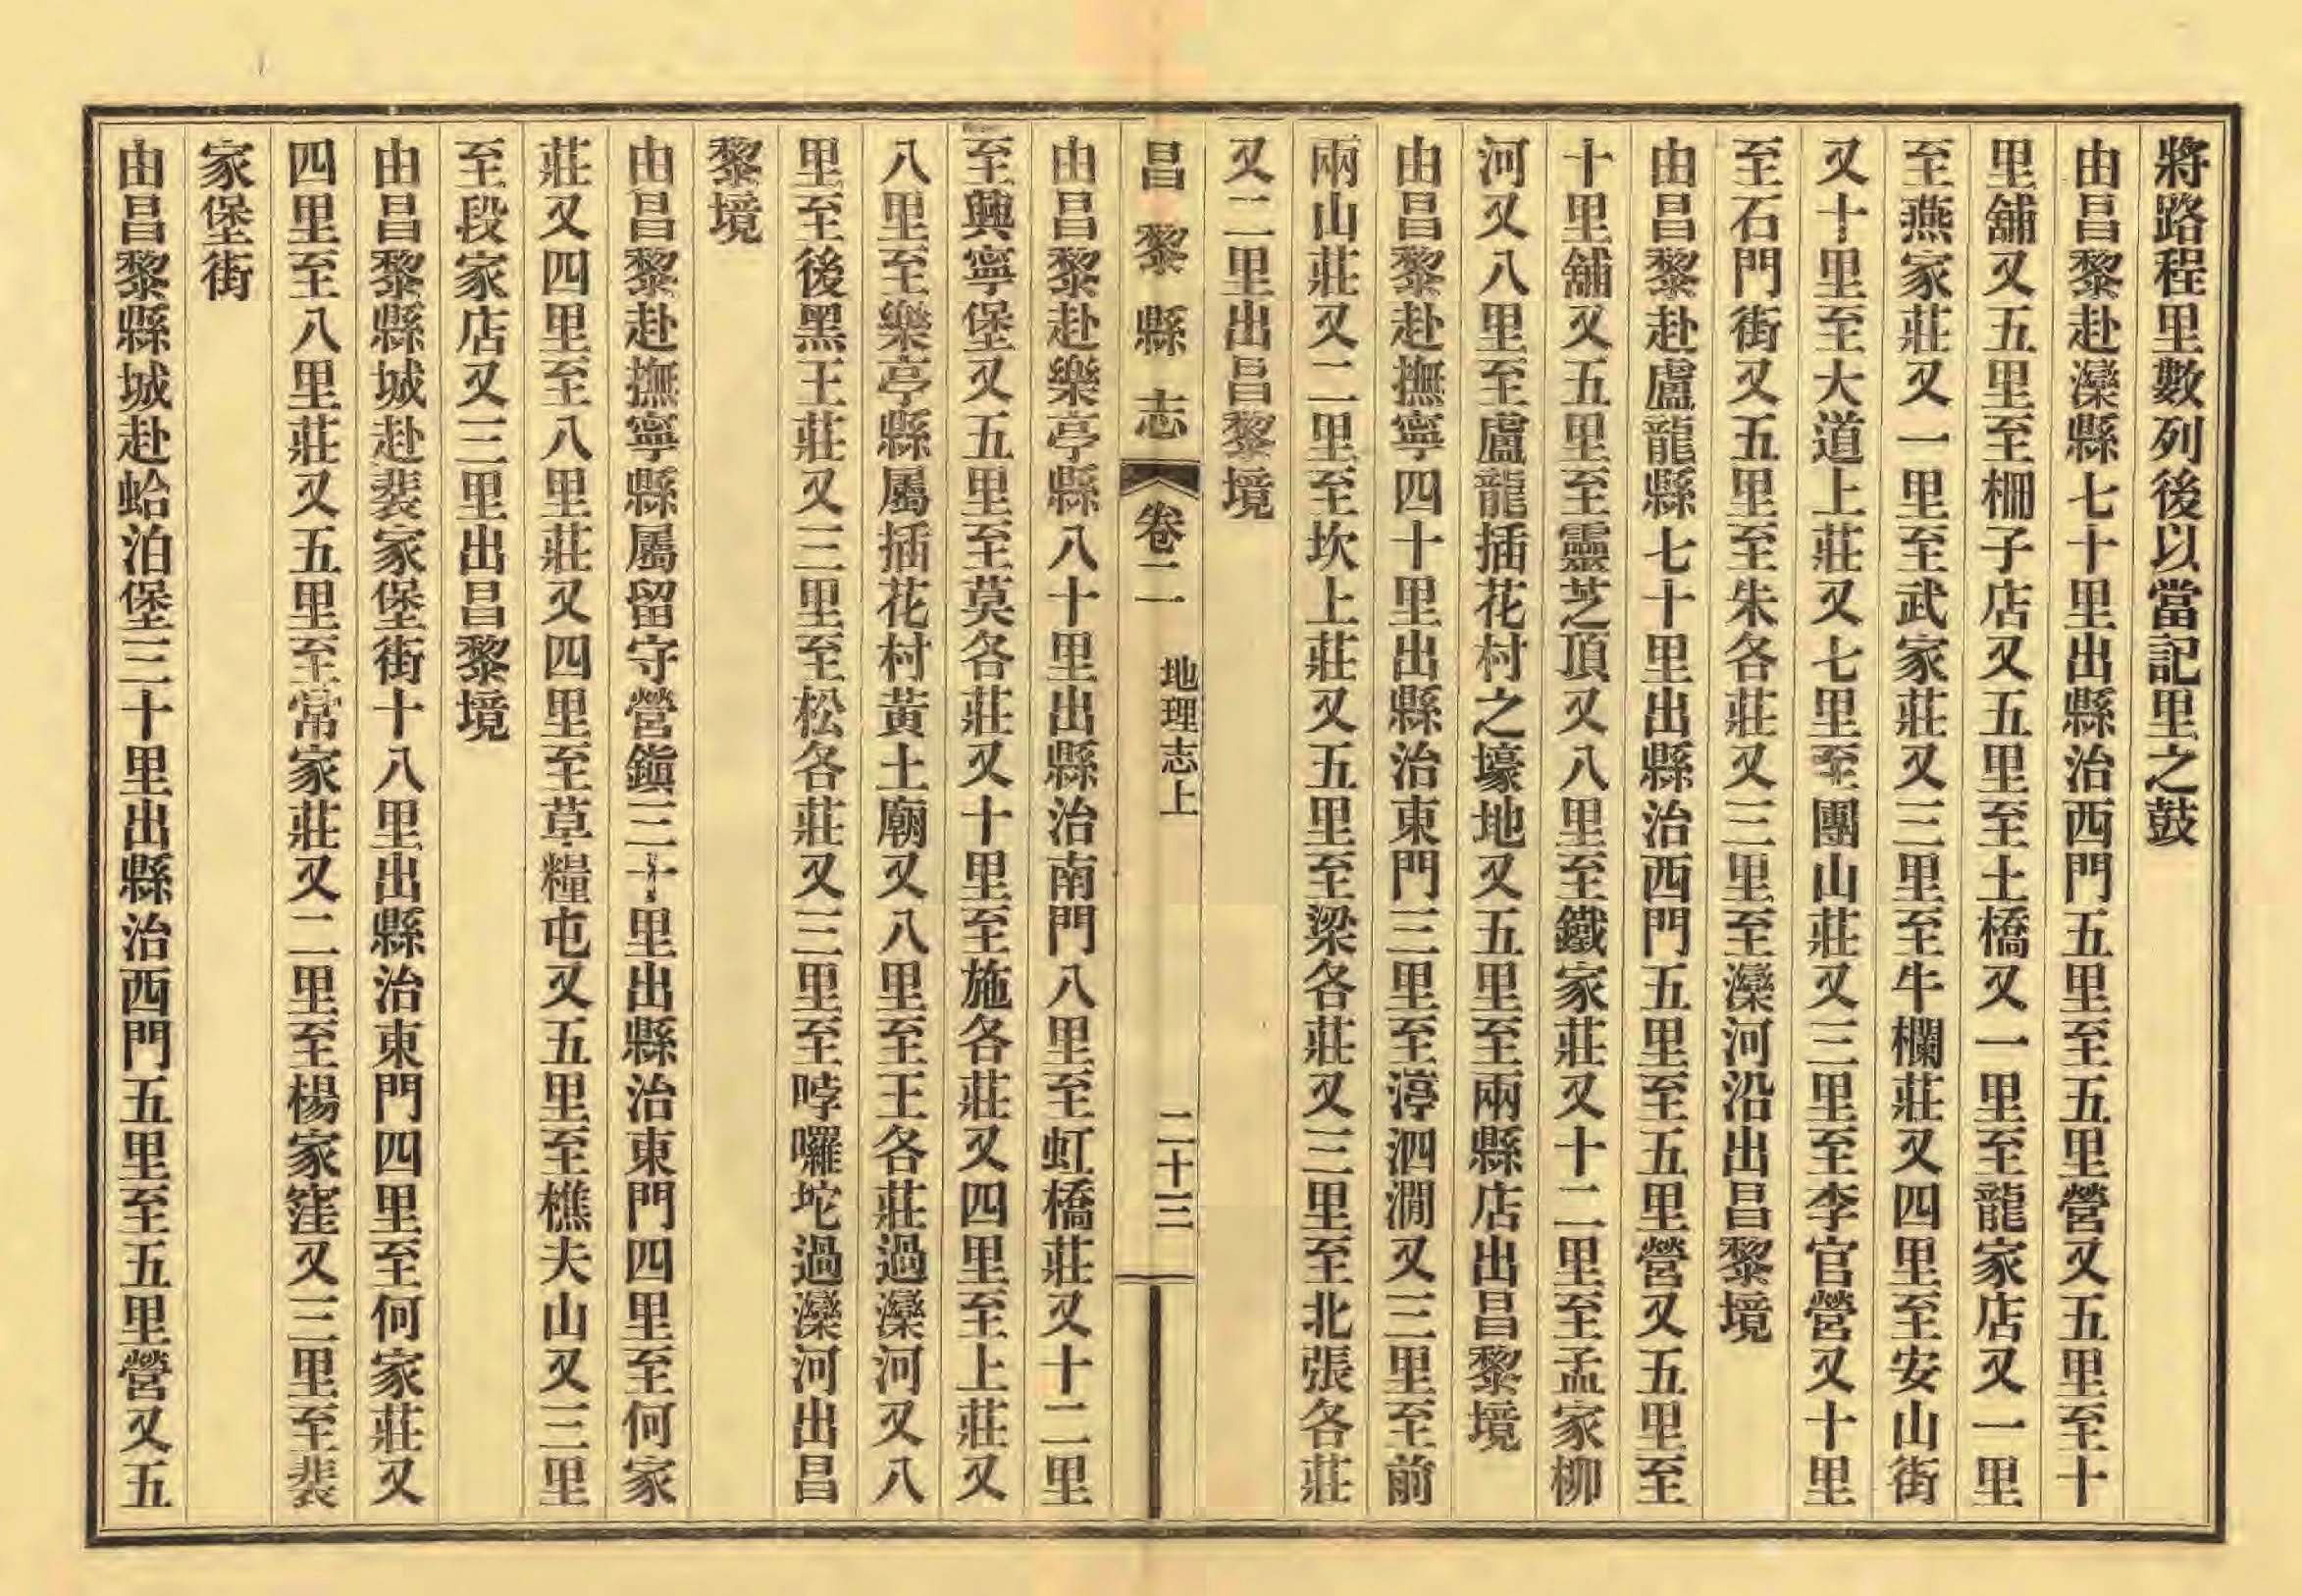 將路程里數列後以當記里之鼓
由昌黎赴灤縣七十里出縣治西門五里至五里營又五里至十
里舖又五里至柵子店又五里至土橋又一里至龍家店又一里
至燕家莊又一里至武家莊又三里至牛欄莊又四里至安山街
又十里至大道上莊又七里至團山莊又三里至李官營又十里
至石門街又五里至朱各莊又三里至灤河沿出昌黎境
由昌黎赴盧龍縣七十里出縣治西門五里至五里營又五里至
十里舖又五里至靈芝頂又八里至鐵家莊又十二里至孟家柳
河又八里至盧龍插花村之壕地又五里至兩縣店出昌黎境
由昌黎赴撫寧四十里出縣治東門三里至渟泗澗又三里至前
兩山莊又二里至坎上莊又五里至梁各莊又三里至北張各莊
又二里出昌黎境
昌黎縣志 卷二 地理志上 二十三
由昌黎赴樂亭縣八十里出縣治南門八里至虹橋莊又十二里
至興寧堡又五里至莫各莊又十里至施各莊又四里至上莊又
八里至樂亭縣屬插花村黃土廟又八里至王各莊過灤河又八
里至後黑王莊又三里至松各莊又三里至哱囉坨過灤河出昌
黎境
由昌黎赴撫寧縣屬留守營鎭三十里出縣治東門四里至何家
莊又四里至八里莊又四里至草糧屯又五里至樵夫山又三里
至段家店又三里出昌黎境
由昌黎縣城赴裴家堡街十八里出縣治東門四里至何家莊又
四里至八里莊又五里至常家莊又二里至楊家窪又三里至裴
家堡街
由昌黎縣城赴蛤泊堡三十里出縣治西門五里至五里營又五